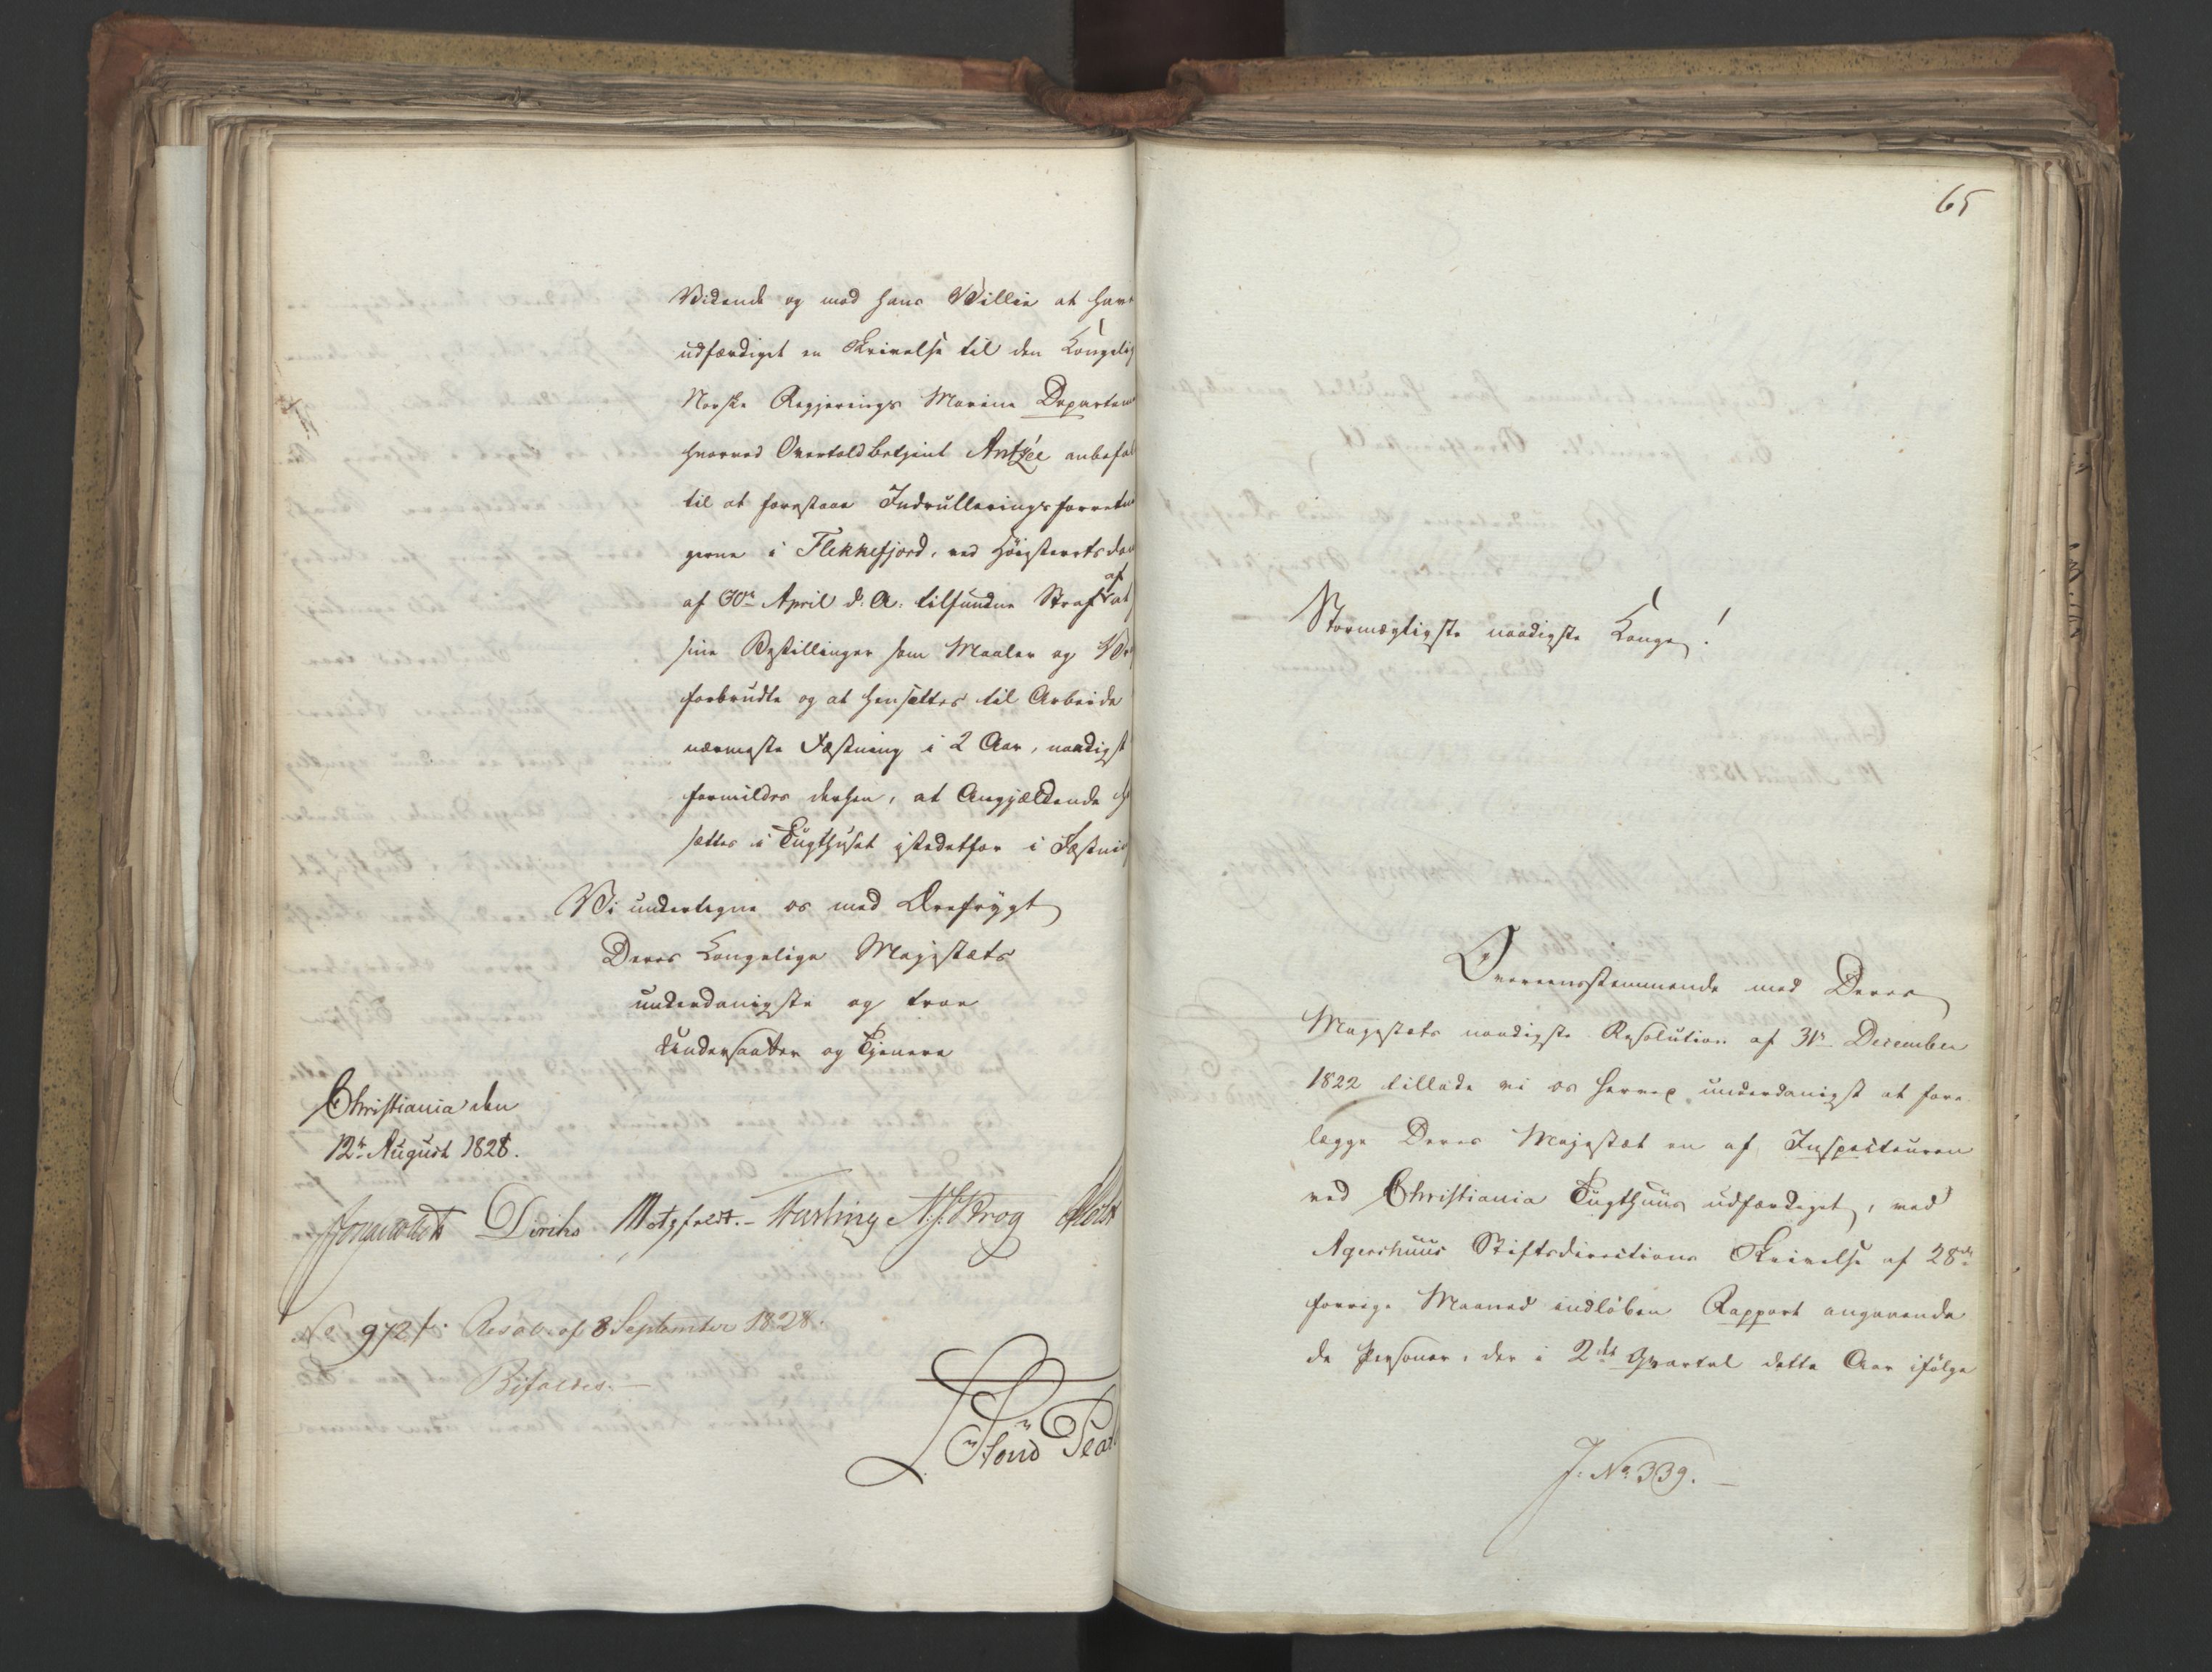 Vidende og mod hans Villie at have
udfærdiget en Skrivelse til den Kongelig
Norske Regjerings Marine Departem
hvorved Overtoldbetjent Antzée anbefal
til at forestaae Indrulleringsforretn
gerne i Flekkefjord, ved Høiesteretsdom
af 30te April d: A: tilfundne Straf af at
sine Bestillinger som Maaler og
forbrudte og at hensættes til Arbeide
nærmeste Fæstning i 2 Aar, naadigst
formildes derhen, at Angjældende h
sættes i Tugthuset istedetfor i Fæstni
Vi undertegne os med Ærefrygt
Deres Kongelige Majestæts
underdanigste og troe
Undersaatter og Tjenere
Christiania den
12te August 1828.
Diriks Motzfeldt. N. J. Krog Holst
No 972/. Resol. af 8 September 1828.
Bifaldes.
65
Stormægtigste naadigste Konge!
Overeensstemmende med Deres
Majestæts naadigste Resolution af 31te December
1822 tillade vi os herved underdanigst at fore
lægge Deres Majestæt en af Inspecteuren
ved Christiania Tugthuus udfærdiget, med
Agershuus Stiftsdirections Skrivelse af 28de
forrige Maaned indløben Rapport angaaende
de Personer, der i 2det Qvartal dette Aar ifølge
J: No 339.